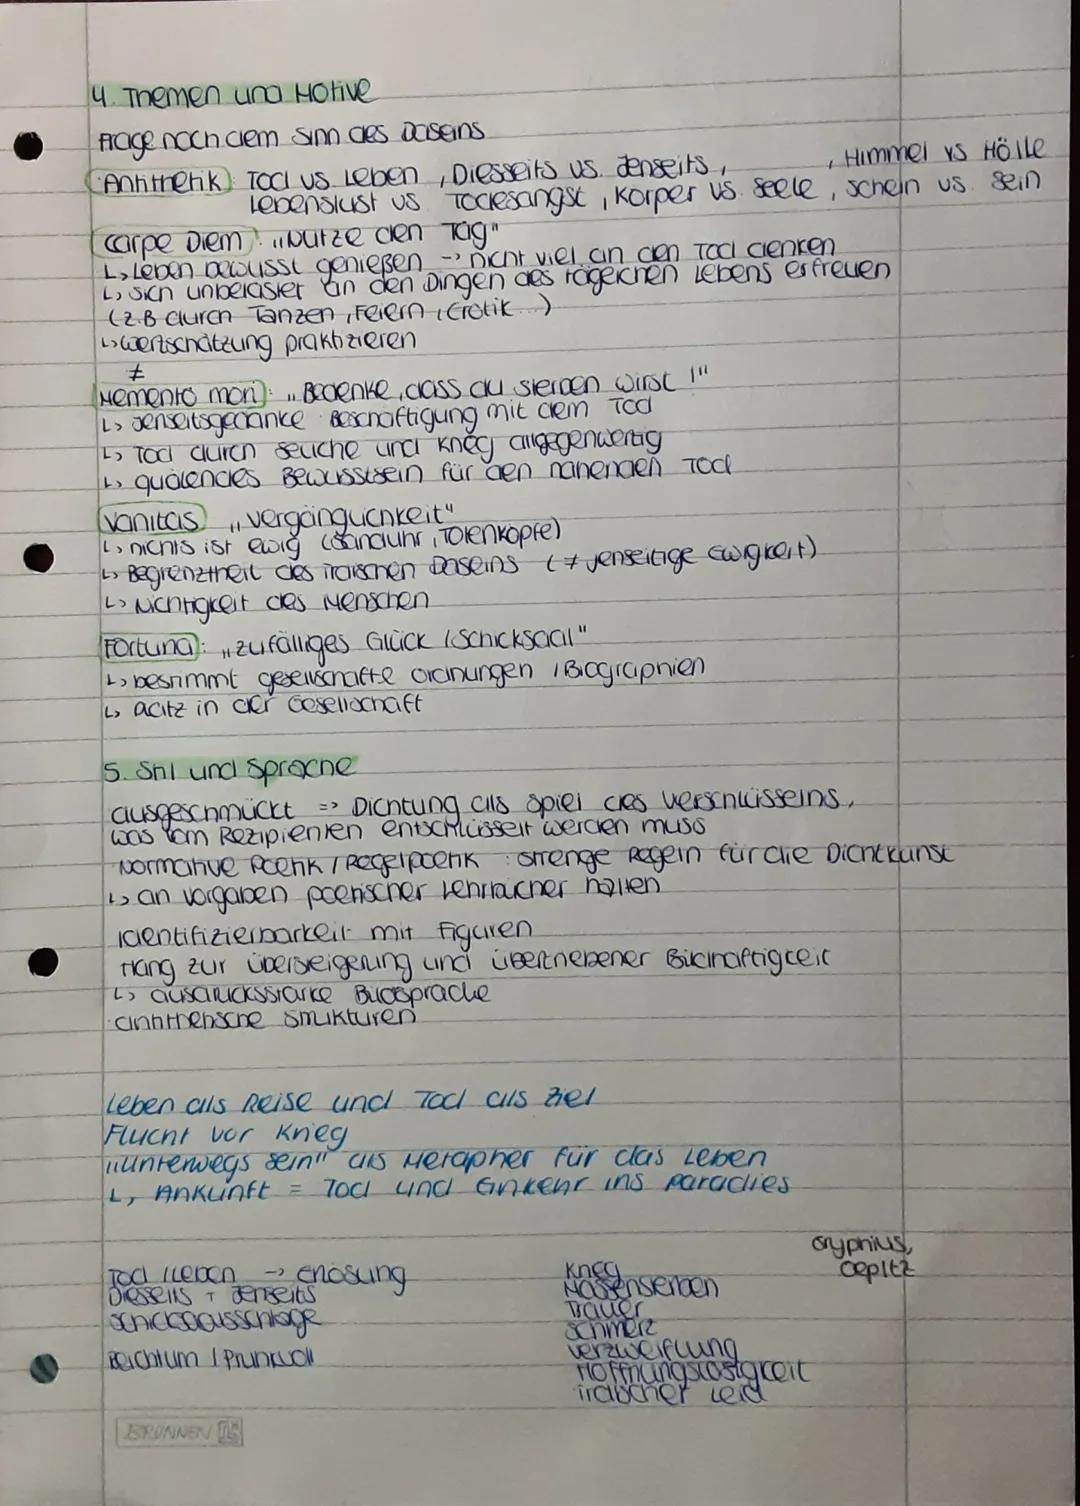 4. Themen und Motive
Frage nach dem Sinn des Daseins
Antithetik: Tod vs Leben, Diesseits vs. Jenseits, , Himmel vs Hölle
Lebenslust vs Todesangst, Körper vs. Seele, Schein vs. Sein
Carpe Diem: "Nutze den Tag"
↳ Leben bewusst genießen → nicht viel an den Tod denken
↳ sich unbelastet an den Dingen des tägeichen Lebens erfreuen
(z.B durch Tanzen, Feiern, Erotik...)
↳ Wertschätzung praktizieren
≠
Memento mori: "Bedenke, dass du sterben wirst!"
↳ Jenseitsgedanke Beschäftigung mit dem Tod
↳ Tod durch Seuche und Krieg allgegenwertig
↳ quälendes Bewusstsein für den nahenden Tod
Vanitas "Vergänglichkeit"
↳ nichts ist ewig (Sanduhr, Totenköpfe)
↳ Begrenztheit des irdischen Daseins (≠ jenseitige Ewigkeit)
↳ Nichtigkeit des Menschen
Fortuna: "zufälliges Glück / Schicksaal"
↳ bestimmt gesellschafte Ordnungen / Biographien
↳ in der Gesellschaft
5. Stil und Sprache
ausgeschmückt => Dichtung als Spiel des Verschlüsselns,
was vom Rezipienten entschlüsselt werden muss
Normative Poetik / Regelpoetik: strenge Regeln für die Dichtkunst
↳ an Vorgaben poetischer Lehrbücher halten
Identifizierbarkeit mit Figuren
Hang zur Übersteigerung und übertriebener Bildhaftigkeit
↳ ausdrucksstarke Bildsprache
antithetische Strukturen
Leben als Reise und Tod als Ziel
Flucht vor Krieg
"unterwegs sein" als Metapher für das Leben
↳ Ankunft = Tod und Einkehr ins Paradies
Gryphius,
Oepitz
Tod / Leben → Erlösung
Diesseits + Jenseits
Schicksalsschläge
Reichtum / Prunkvoll
Krieg
Massensterben
Trauer
Schmerz
Verzweiflung
Hoffnungslosigkeit
irdischer Leid
BRUNNEN